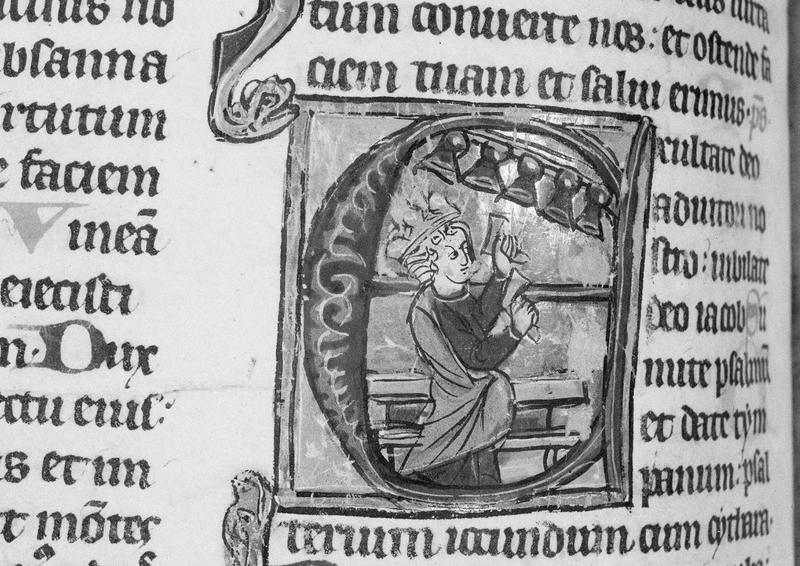 no
absanna
rtutum
e faciem
Vineã
eiecisti
Dux
ectu eius:
s et im
t mõtes
tium conuerte nos: et ostende fa
ciem tuam et salui erimus. p̃s
Exultate deo
adiutori no
stro: iubilate
deo iacob Su
mite psalmũ
et date tym
panum: psal
terium iocundum cum cythara.